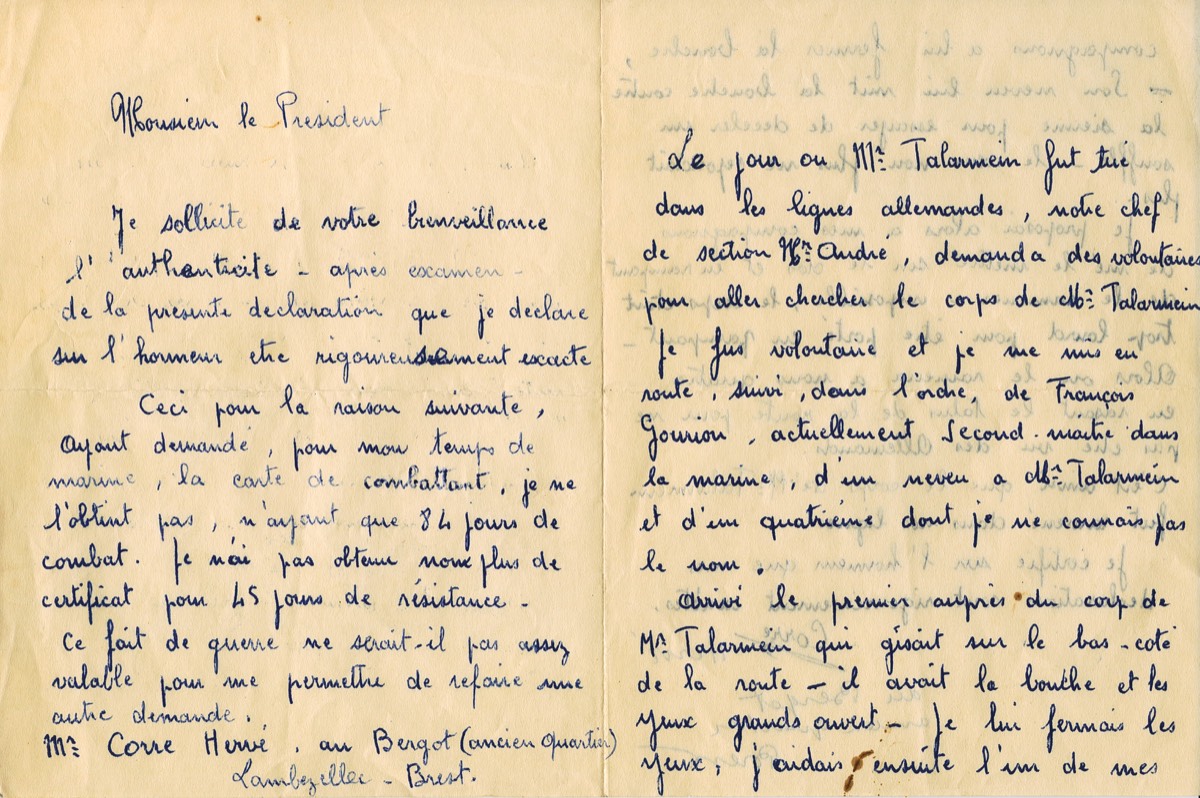 Monsieur le President
Je sollicite de votre bienveillance
l'authenticite - après examen -
de la présente declaration que je déclare
sur l'honneur etre rigoureusement exacte
Ceci pour la raison suivante,
Ayant demandé, pour mon temps de
marine, la carte de combattant, je ne
l'obtint pas, n'ayant que 84 jours de
combat. Je n'ai pas obtenu nonx plus de
certificat pour 45 jours de résistance -
Ce fait de guerre ne serait-il pas assez
valable pour me permettre de refaire une
autre demande.
Mr Corre Hervé. au Bergot (ancien Quartier)
Lambezellec - Brest.
Le jour ou Mr Talarmein fut tué
dans les lignes allemandes, notre chef
de section Mr André, demanda des volontaires
pour aller chercher le corps de Mr Talarmein
Je fus volontaire et je me mis en
route, suivi, dans l'ordre, de François
Gourion, actuellement Second-maitre dans
la marine, d'un neveu a Mr Talarmein
et d'un quatriéme dont je ne connais pas
le nom.
Arrivé le premier auprès du corps de
Mr Talarmein qui gisait sur le bas-coté
de la route - il avait la bouche et les
yeux grands ouvert - Je lui fermais les
yeux, j'aidais ensuite l'un de mes